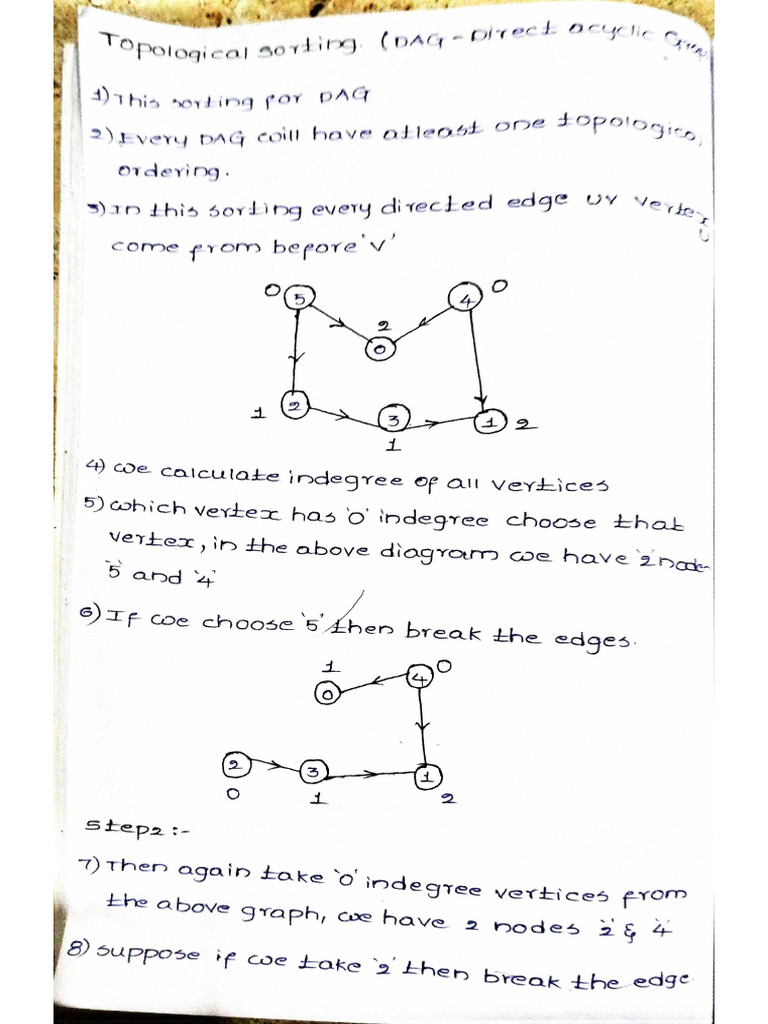 Topological sorting. (DAG - Direct acyclic
1) This sorting for DAG
2) Every DAG will have atleast one topologica
ordering.
3) In this sorting every directed edge uv vertex
u
come from before 'v'
0 5 4 0
2
0
1 2 3 1 2
1
4) We calculate indegree of all vertices
5) which vertex has '0' indegree choose that
vertex, in the above diagram we have '2' node
'5' and '4'
6) If we choose '5' then break the edges.
1 4 0
0
2 3 1
0 1 2
Step2:-
7) Then again take '0' indegree vertices from
the above graph, we have 2 nodes '2' & '4'
8) suppose if we take '2' then break the edge